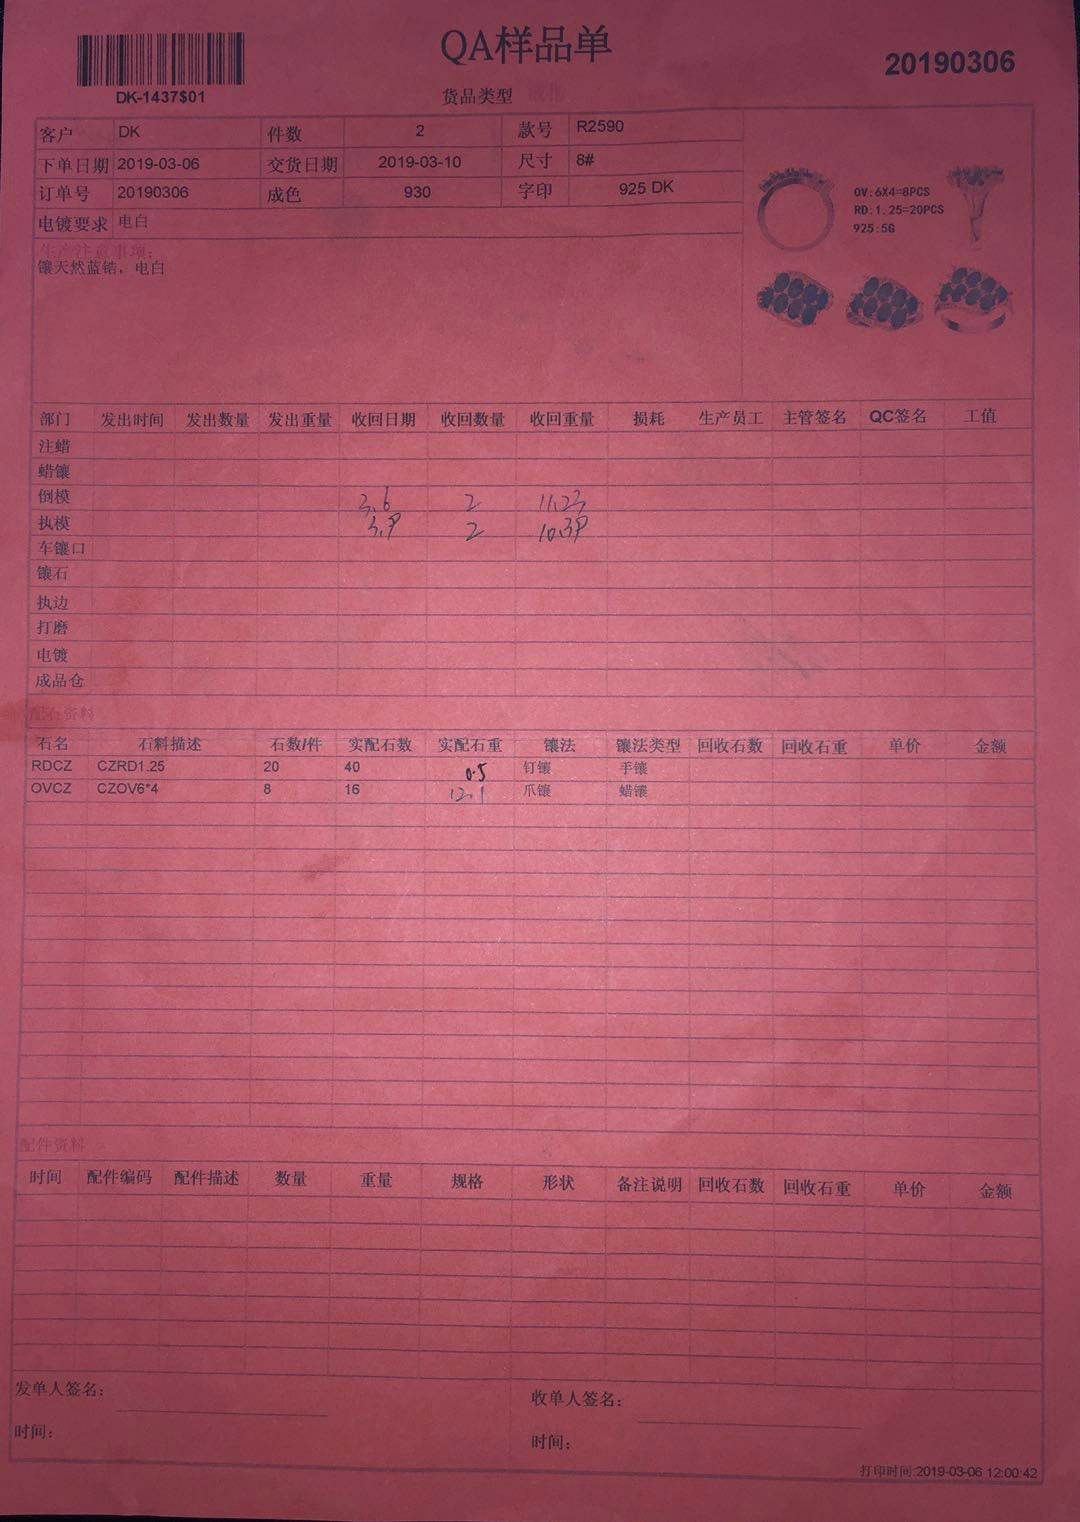 QA样品单
20190306
DK-1437$01
货品类型
客户 DK 件数 2 款号 R2590
下单日期 2019-03-06 交货日期 2019-03-10 尺寸 8#
订单号 20190306 成色 930 字印 925 DK
电镀要求 电白
OV:6X4=8PCS
RD:1.25=20PCS
925:5G
生产注意事项:
镶天然蓝锆，电白
部门 发出时间 发出数量 发出重量 收回日期 收回数量 收回重量 损耗 生产员工 主管签名 QC签名 工值
注蜡
蜡镶
倒模 3.6 2 11.23
执模 3.9 2 10.39
车镶口
镶石
执边
打磨
电镀
成品仓
配石资料
石名 石料描述 石数/件 实配石数 实配石重 镶法 镶法类型 回收石数 回收石重 单价 金额
RDCZ CZRD1.25 20 40 0.5 钉镶 手镶
OVCZ CZOV6*4 8 16 12.1 爪镶 蜡镶
配件资料
时间 配件编码 配件描述 数量 重量 规格 形状 备注说明 回收石数 回收石重 单价 金额
发单人签名: 收单人签名:
时间: 时间:
打印时间:2019-03-06 12:00:42